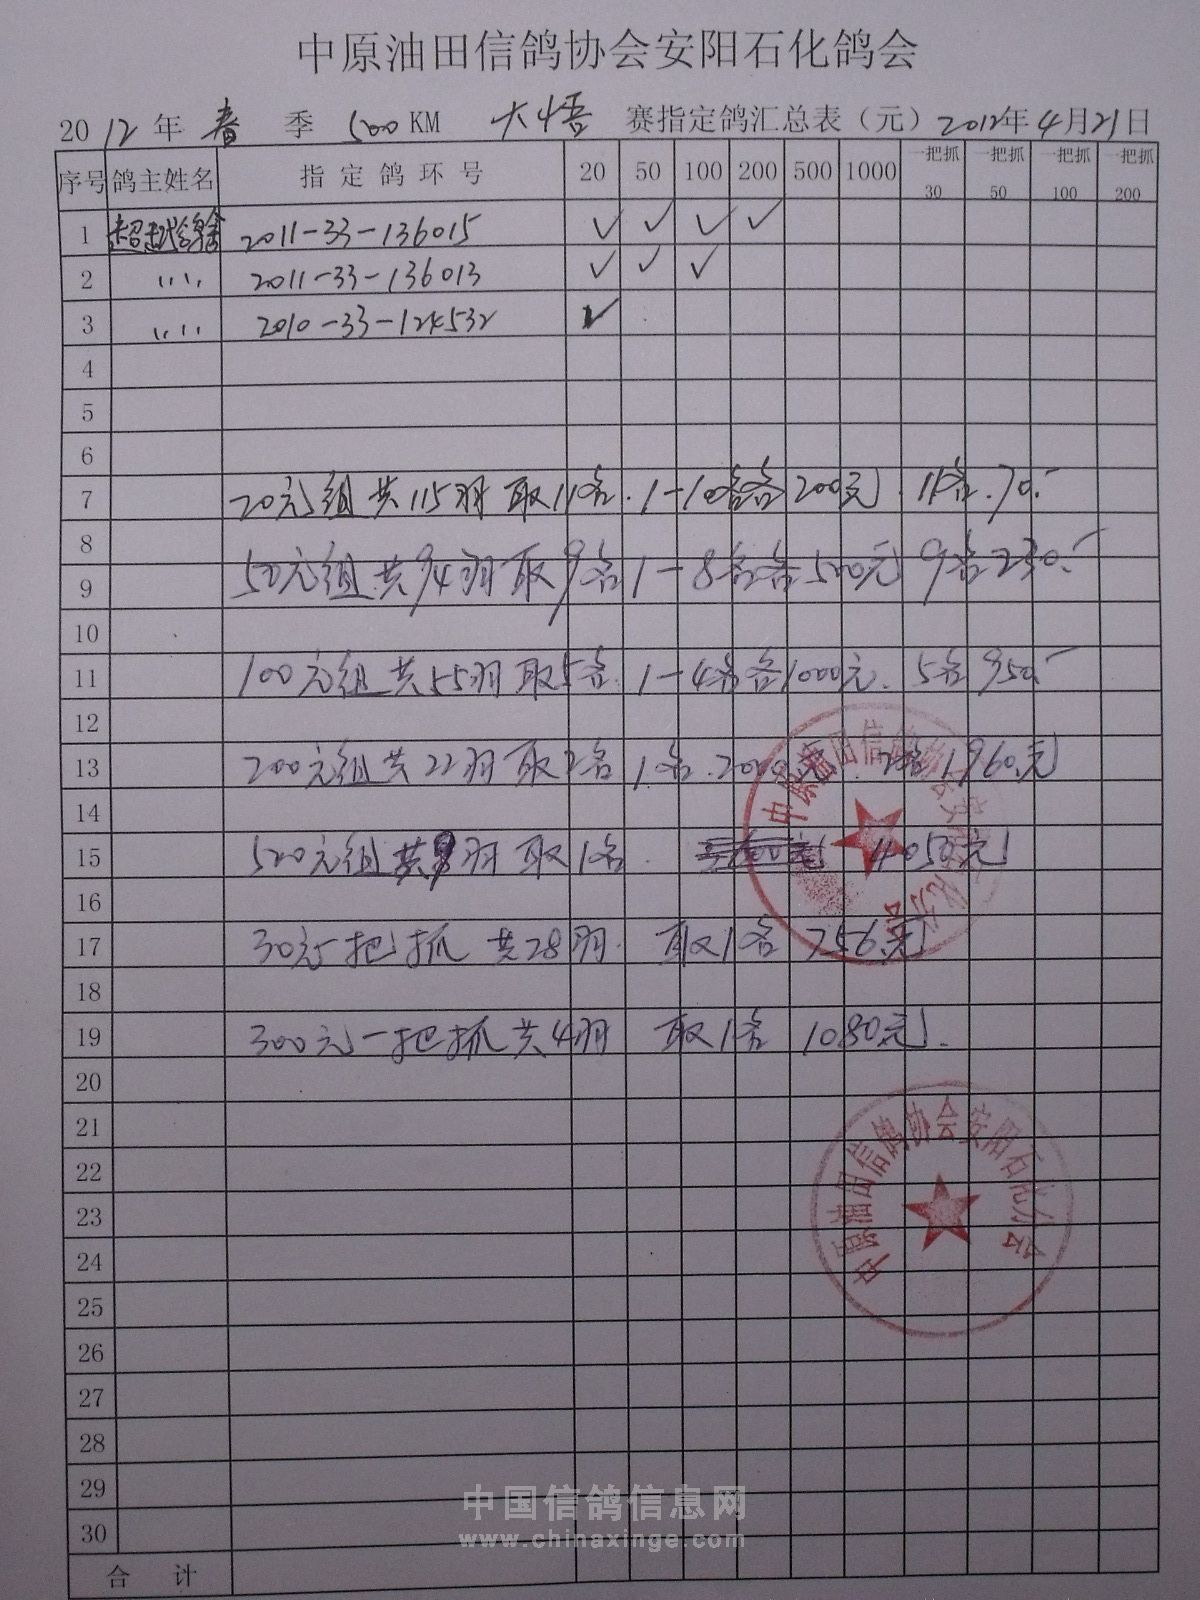 中原油田信鸽协会安阳石化鸽会
2012年 春 季 500KM 大悟 赛指定鸽汇总表（元）2012年4月21日
序号 鸽主姓名 指定鸽环号 20 50 100 200 500 1000 一把抓30 一把抓50 一把抓100 一把抓200
1 超越 2011-33-136015 ✓ ✓ ✓ ✓
2 〃 2011-33-136013 ✓ ✓ ✓
3 〃 2010-33-124532 ✓
4
5
6
7 20元组共115羽 取11名. 1-10名各200元. 11名.70.-
8
9 50元组共94羽取9名1-8名各500元 9名230.-
10
11 100元组共55羽取5名. 1-4名各1000元. 5名950.-
12
13 200元组共22羽取2名 1名.2000元. 2名1960元
14
15 500元组共9羽取1名. 4050元
16
17 30元一把抓 共28羽. 取1名 756元
18
19 300元一把抓共4羽 取1名 1080元.
20
21
22
23
24
25
26
27
28
29
30
合计
中原油田信鸽协会安阳石化分会
中原油田信鸽协会安阳石化分会
中国信鸽信息网
www.chinaxinge.com